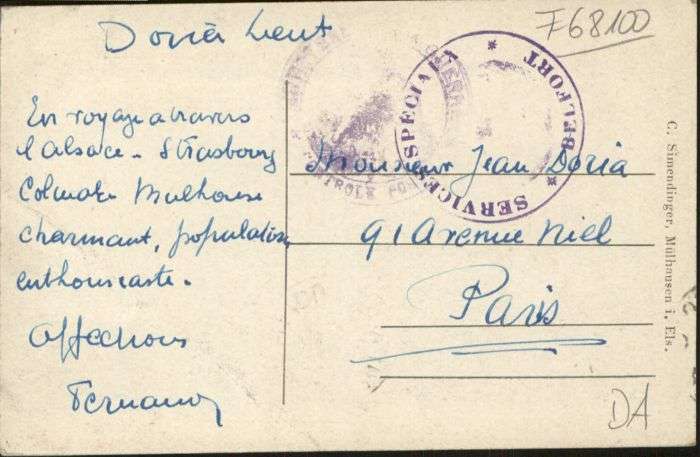 Doria Lieut
F68100
En voyage a travers
l'alsace - Strasbourg
Colmar Mulhouse
charmant, population
enthousiaste.
Affections
Fernand
SERVICES SPECIAUX
* BELFORT *
CONTROLE
Monsieur Jean Doria
91 Avenue Niel
Paris
C. Simendinger, Mülhausen i. Els.
DA